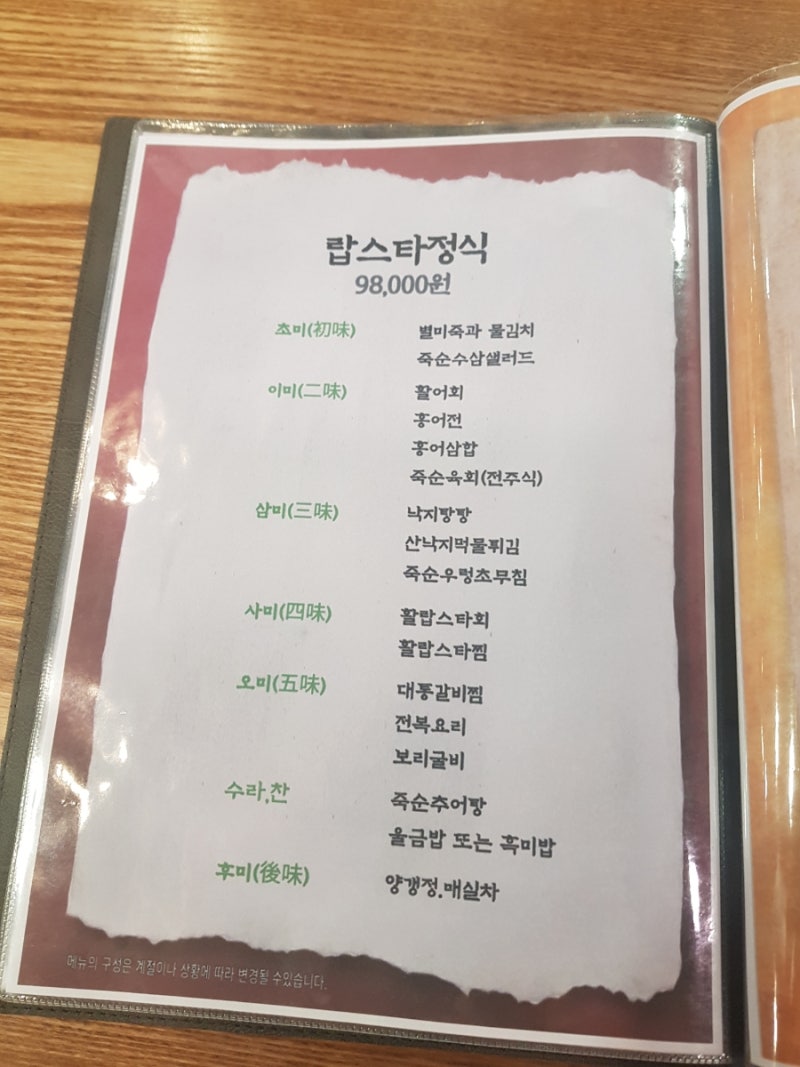 랍스타정식
98,000원
초미(初味) 별미죽과 물김치
죽순수삼샐러드
이미(二味) 활어회
홍어전
홍어삼합
죽순육회(전주식)
삼미(三味) 낙지탕탕
산낙지먹물튀김
죽순우렁초무침
사미(四味) 활랍스타회
활랍스타찜
오미(五味) 대통갈비찜
전복요리
보리굴비
수라,찬 죽순추어탕
울금밥 또는 흑미밥
후미(後味) 양갱정.매실차
메뉴의 구성은 계절이나 상황에 따라 변경될 수있습니다.